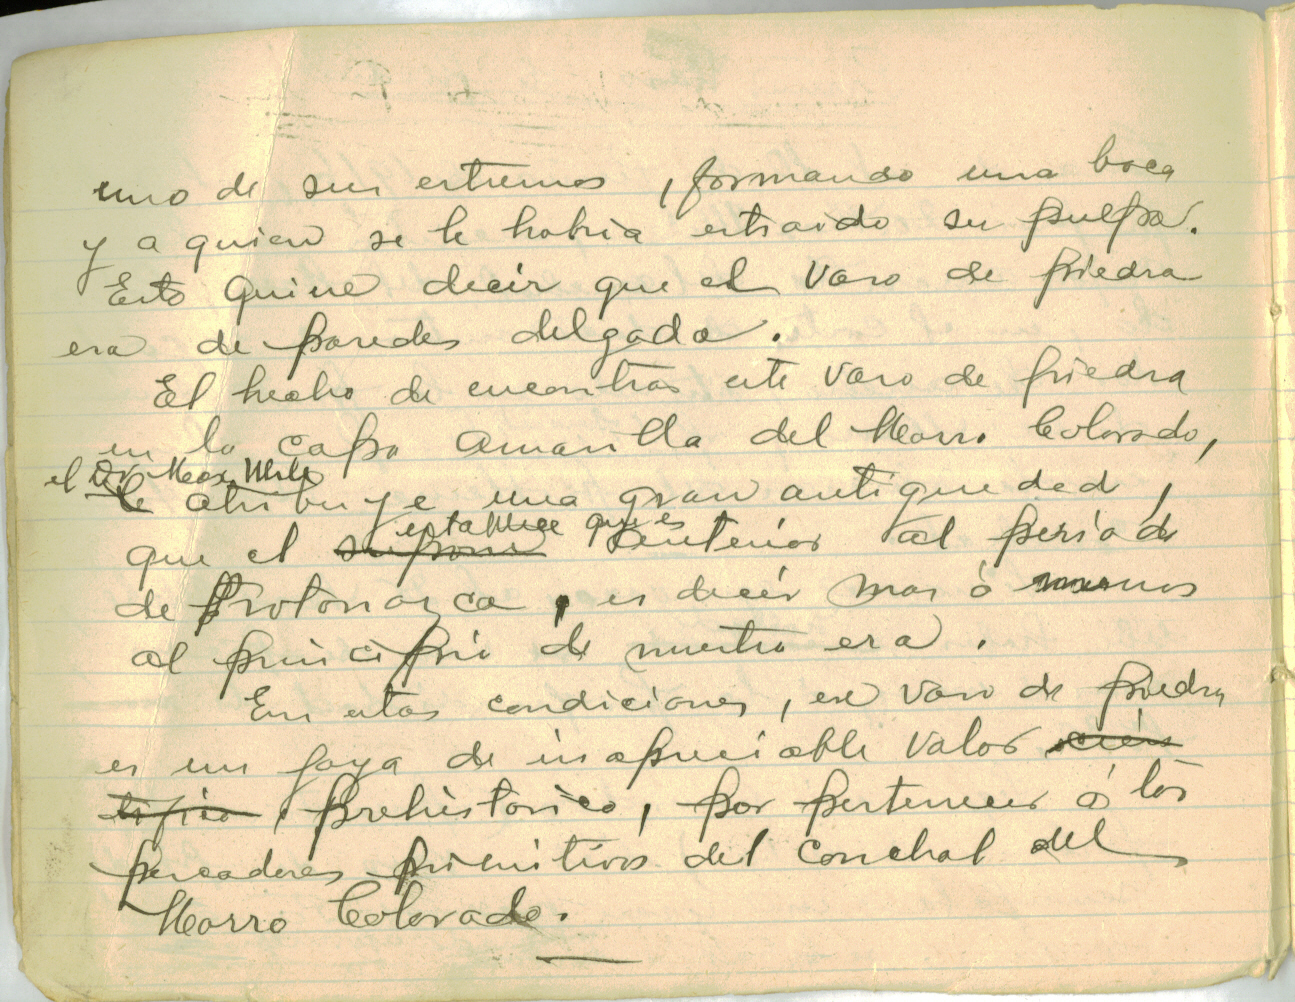 uno de sus estremos, formando una boca
y a quien se le habia estraido su pulpa.
Esto quiere decir que el vaso de piedra
era de paredes delgada.
El hecho de encontrar este vaso de piedra
en la capa amarilla del Morro Colorado,
el Dr. Max Uhle
le atribuye una gran antiguedad,
establece que es
que el supone anterior al periodo
de Protonazca, es decir mas ó menos
al principio de nuestra era.
En estas condiciones, ese vaso de piedra
es un joya de inapreciable valor cien
tifico prehistorico, por pertenecer á los
pescadores primitivos del conchal del
Morro Colorado.